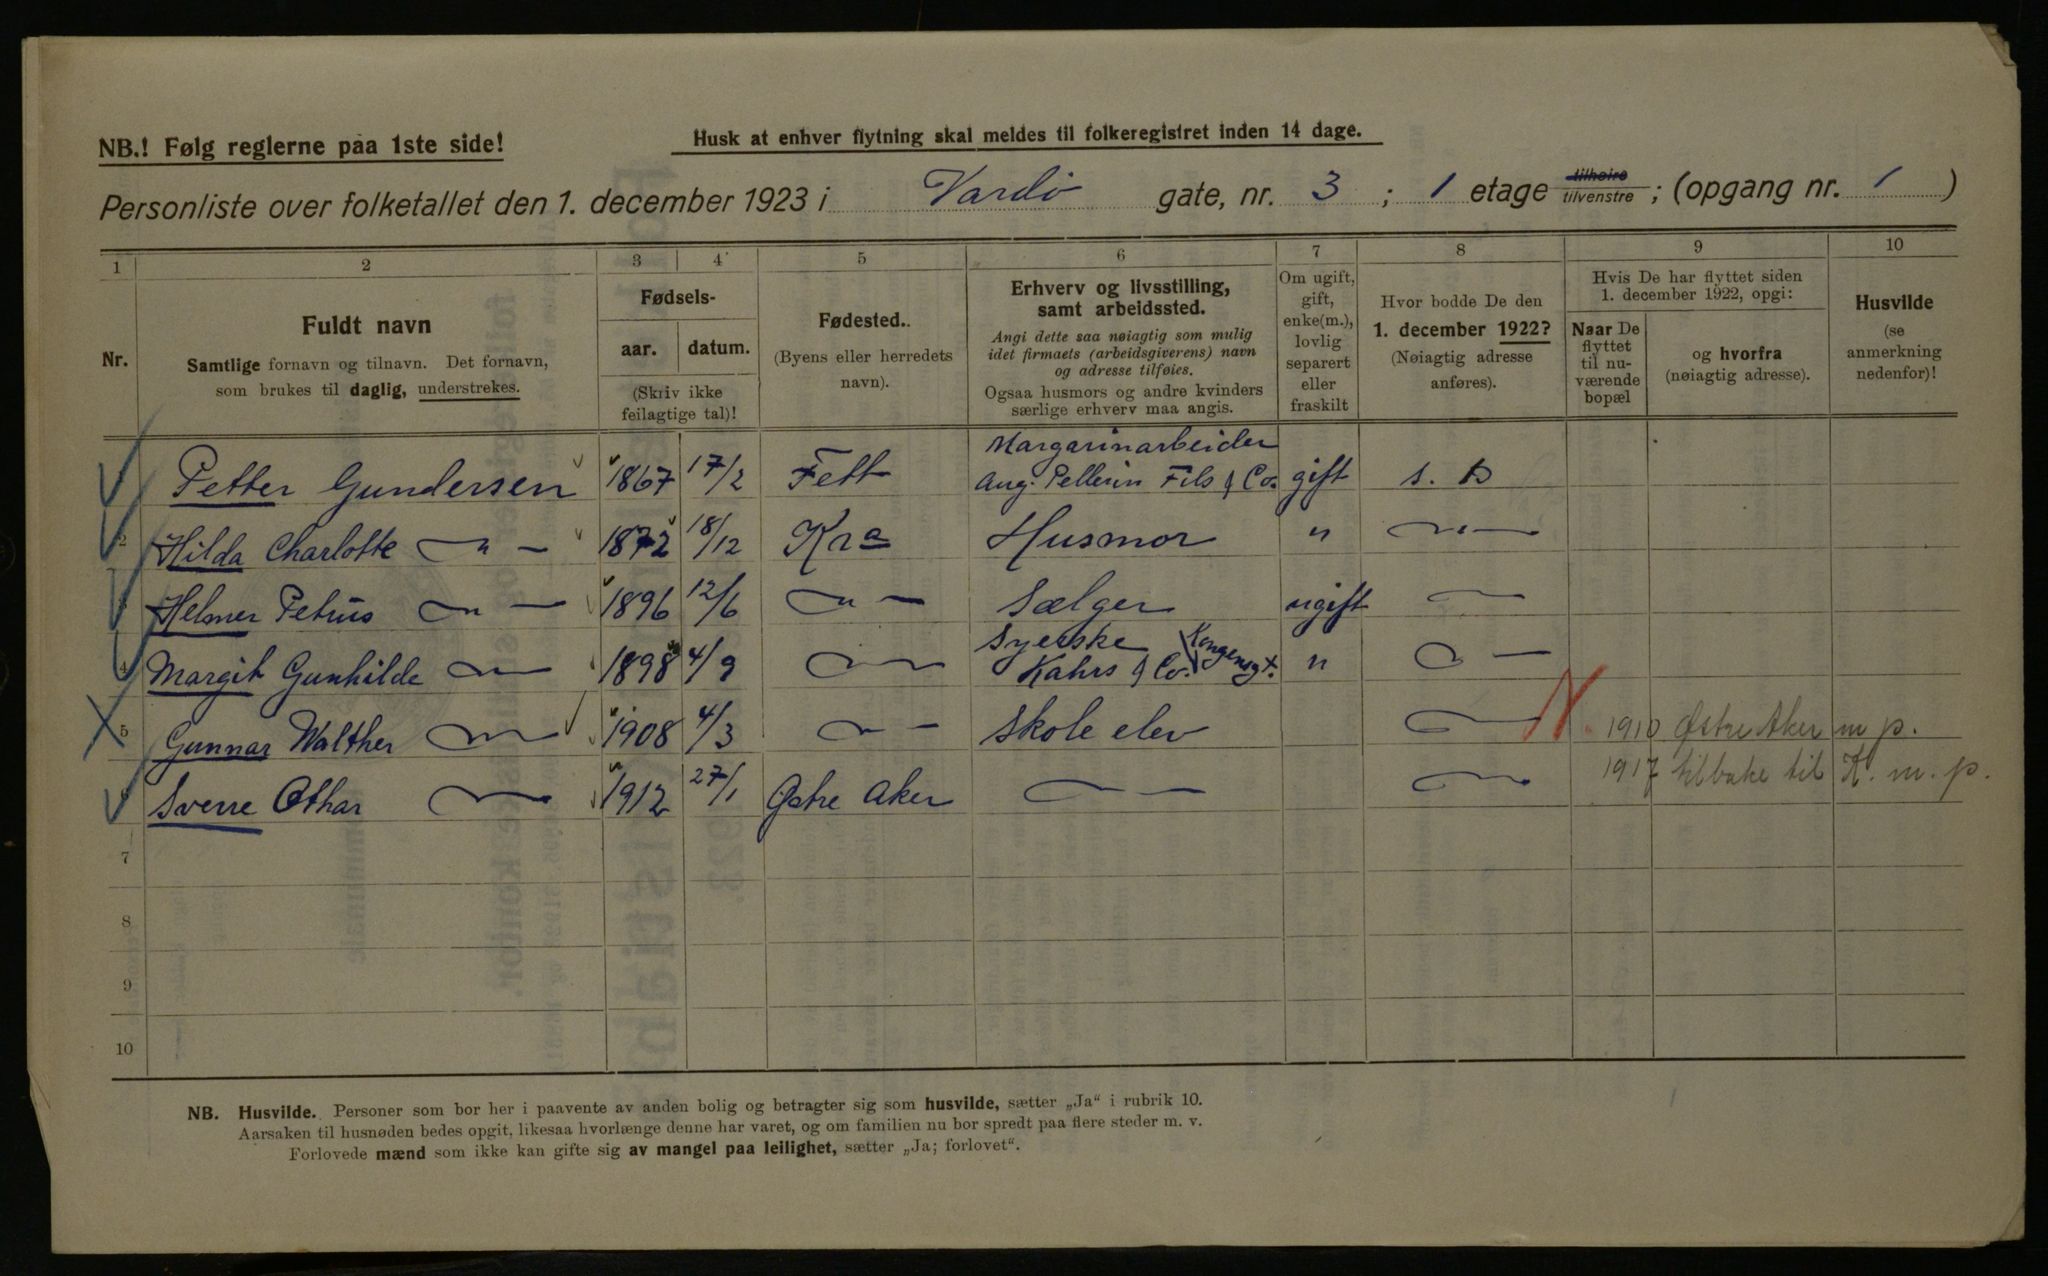 NB.! Følg reglerne paa 1ste side!
Husk at enhver flytning skal meldes til folkeregistret inden 14 dage.
Personliste over folketallet den 1. december 1923 i Vardö gate, nr. 3 ; 1 etage tilhøire tilvenstre ; (opgang nr. 1 )
1 2 3 4 5 6 7 8 9 10
Nr.
Fuldt navn
Samtlige fornavn og tilnavn. Det fornavn,
som brukes til daglig, understrekes.
Fødsels-
aar. datum.
(Skriv ikke
feilagtige tal)!
Fødested.
(Byens eller herredets
navn).
Erhverv og livsstilling,
samt arbeidssted.
Angi dette saa nøiagtig som mulig
idet firmaets (arbeidsgiverens) navn
og adresse tilføies.
Ogsaa husmors og andre kvinders
særlige erhverv maa angis.
Om ugift,
gift,
enke(m.),
lovlig
separert
eller
fraskilt
Hvor bodde De den
1. december 1922?
(Nøiagtig adresse
anføres).
Hvis De har flyttet siden
1. december 1922, opgi:
Naar De
flyttet
til nu-
værende
bopæl
og hvorfra
(nøiagtig adresse).
Husvilde
(se
anmerkning
nedenfor)!
Margarinarbeider
Petter Gundersen 1867 17/2 Fett Aug. Pellerin Fils & Co. gift s. s
2 Hilda Charlotte — " — 1872 18/12 Kra Husmor " — " —
3 Helmer Petrus — " — 1896 12/6 — " — Sælger ugift —
Syerske Kongensgt.
4 Margit Gunhilde — " — 1898 4/9 — " — Kahrs & Co. " — " —
5 Gunnar Walther — " — 1908 4/3 — " — Skole elev — " — N. 1910 Østre Aker m p.
1917 tilbake til K. m. p.
6 Sverre Othar — " — 1912 27/1 Østre Aker — " — — " —
7
8
9
10
NB. Husvilde. Personer som bor her i paavente av anden bolig og betragter sig som husvilde, sætter „Ja“ i rubrik 10.
Aarsaken til husnøden bedes opgit, likesaa hvorlænge denne har varet, og om familien nu bor spredt paa flere steder m. v.
Forlovede mænd som ikke kan gifte sig av mangel paa leilighet, sætter „Ja; forlovet“.